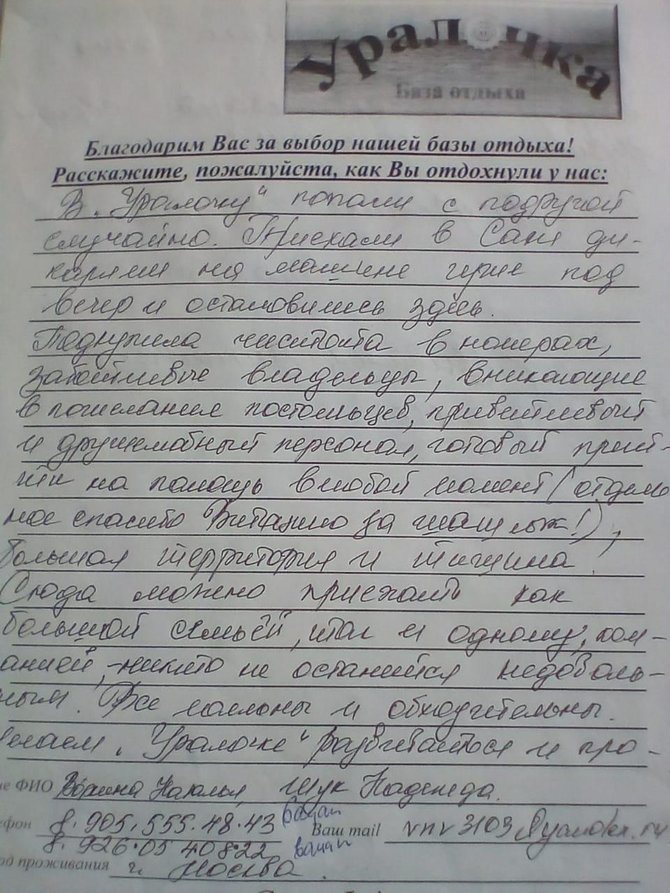 Уралочка
База отдыха
Благодарим Вас за выбор нашей базы отдыха!
Расскажите, пожалуйста, как Вы отдохнули у нас:
В „Уралочку" попали с подругой
случайно. Приехали в Саки ди-
карями на машине уже под
вечер и остановились здесь.
Подкупила чистота в номерах,
заботливые владельцы, вникающие
в пожелания постояльцев, приветливый
и дружелюбный персонал, готовый прий-
ти на помощь в любой момент (отдель
ное спасибо Виталию за шашлык!),
большая территория и тишина.
Сюда можно приехать как
большой семьёй, так и одному, ком-
панией, - никто не останется недоволь-
ным. Все лояльны и обходительны.
Желаем „Уралочке" развиваться и про-
ФИО Наталья, Щук Надежда.
8.905.555.48.43
Ваш mail vnv3103@yandex.ru
8.926.05 40822
проживания г. Москва.